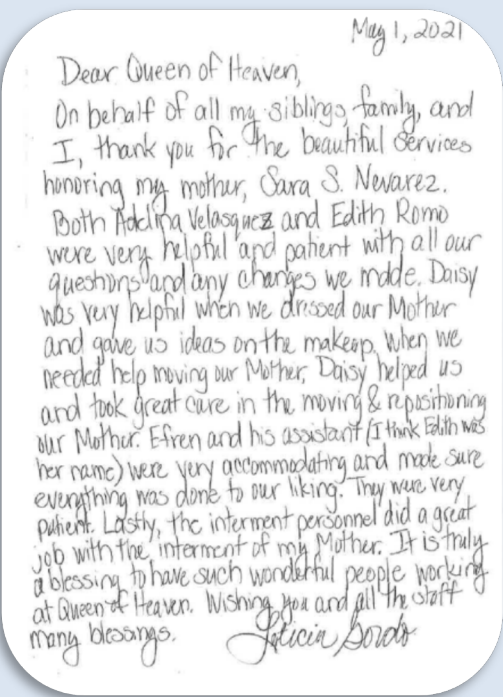 May 1, 2021
Dear Queen of Heaven,
On behalf of all my siblings, family, and
I, thank you for the beautiful services
honoring my mother, Sara S. Nevarez.
Both Adelina Velasquez and Edith Romo
were very helpful and patient with all our
questions and any changes we made. Daisy
was very helpful when we dressed our Mother
and gave us ideas on the makeup. When we
needed help moving our Mother, Daisy helped us
and took great care in the moving & repositioning
our Mother. Efren and his assistant (I think Edith was
her name) were very accommodating and made sure
everything was done to our liking. They were very
patient. Lastly, the interment personnel did a great
job with the interment of my Mother. It is truly
a blessing to have such wonderful people working
at Queen of Heaven. Wishing you and all the staff
many blessings. Leticia Gordo